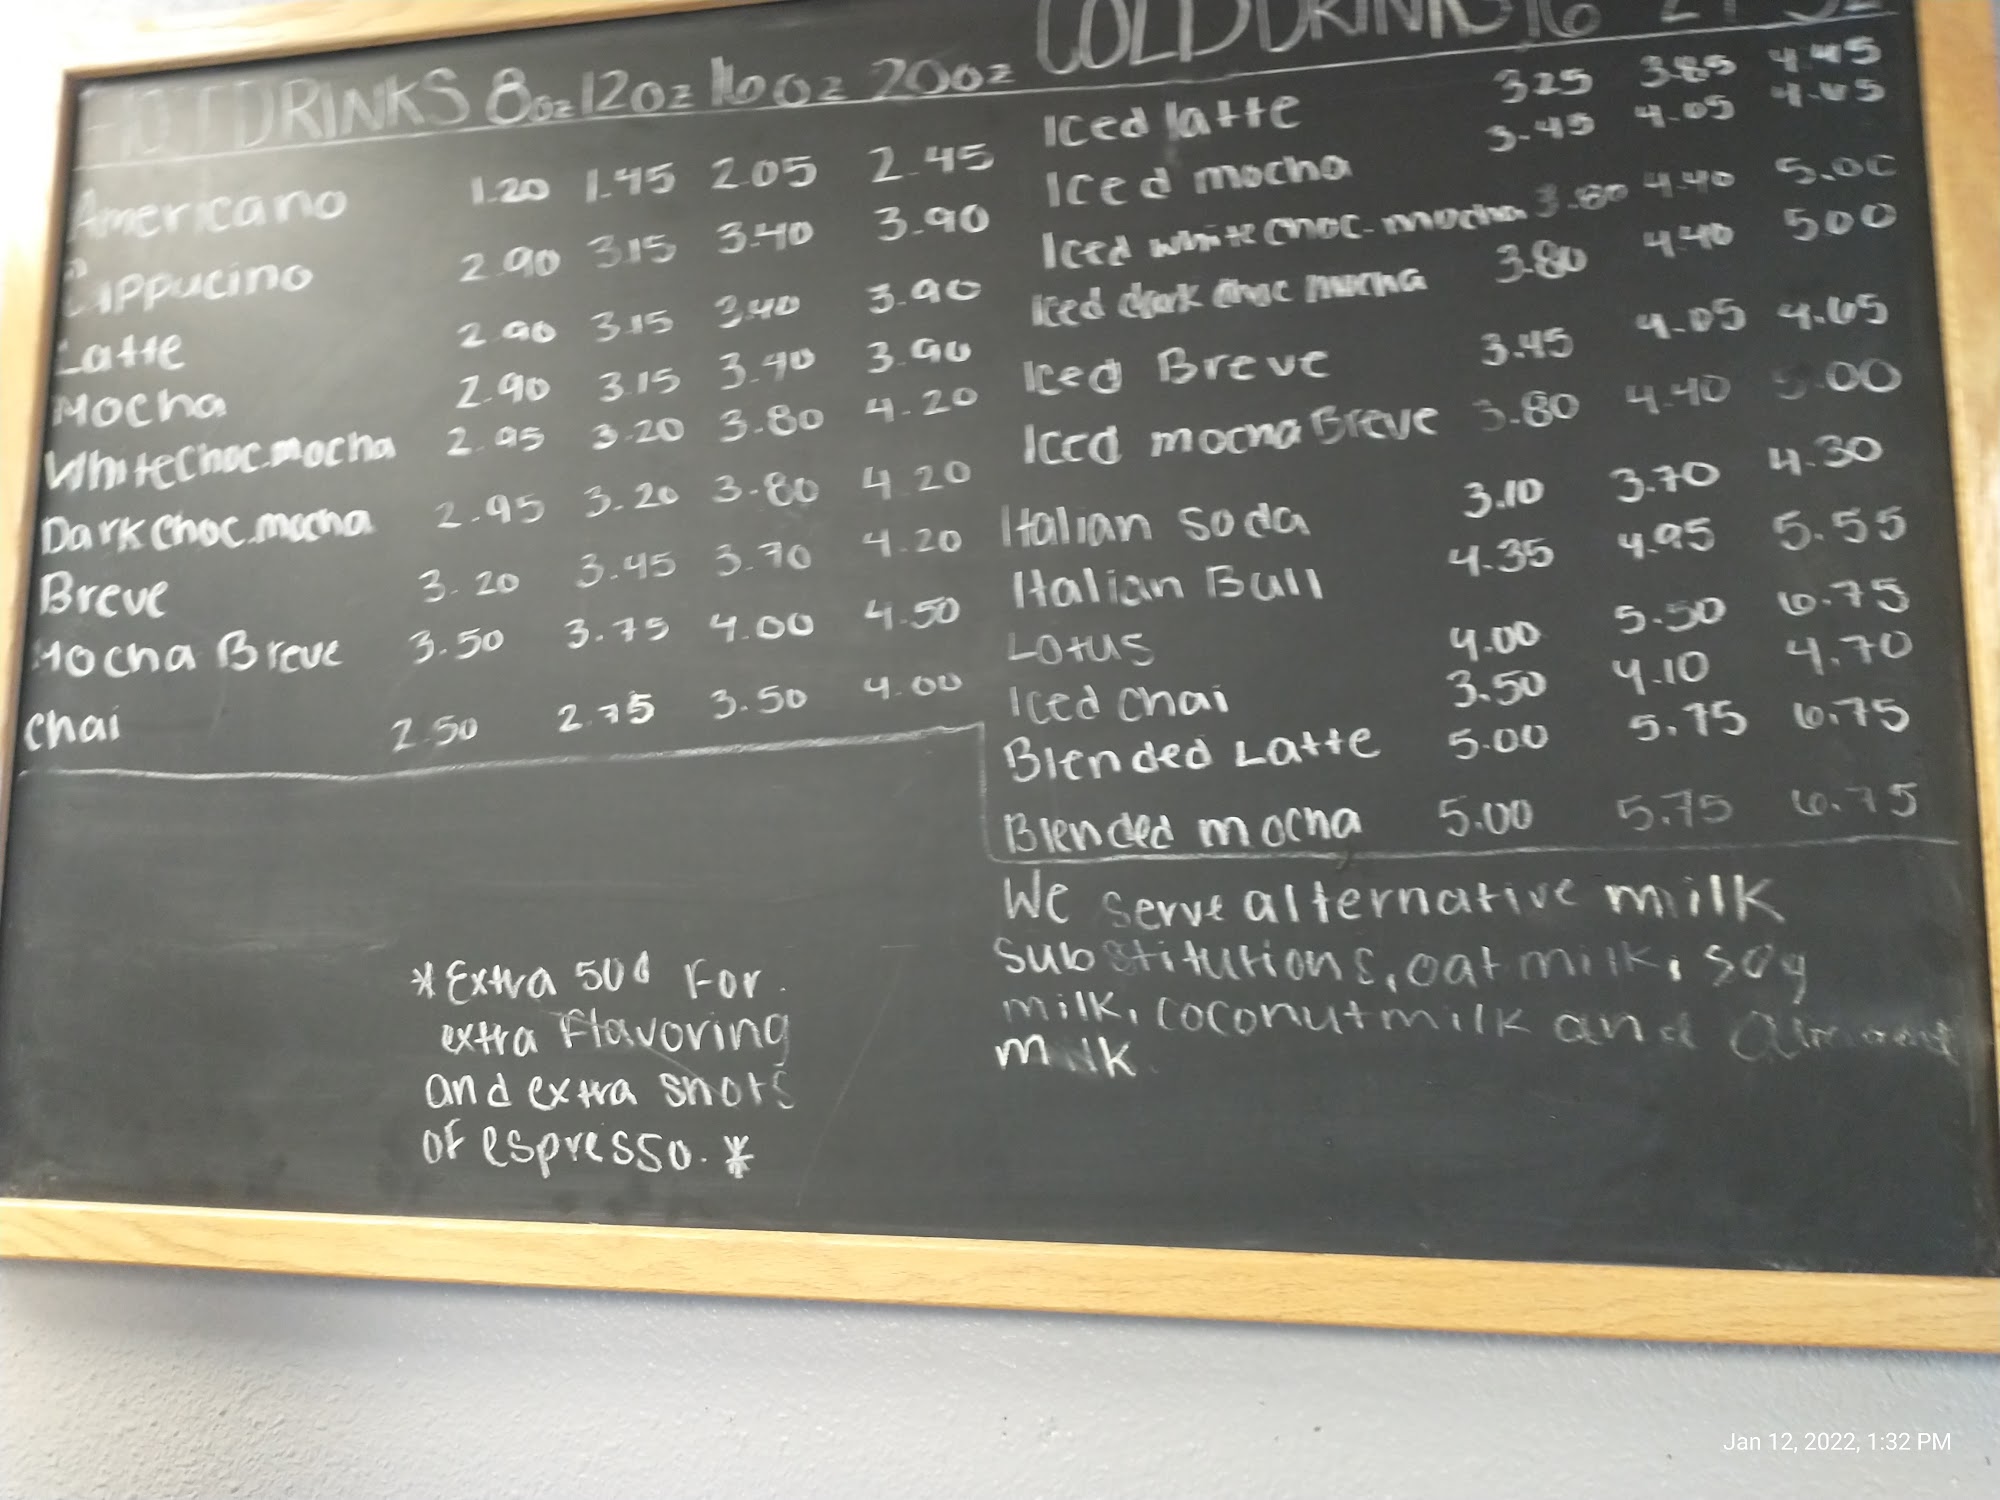 HOT DRINKS 8oz 12oz 16oz 20oz
Americano 1.20 1.45 2.05 2.45
Cappucino 2.90 3.15 3.40 3.90
Latte 2.90 3.15 3.40 3.90
Mocha 2.90 3.15 3.40 3.90
White Choc. mocha 2.95 3.20 3.80 4.20
Dark Choc. mocha 2.95 3.20 3.80 4.20
Breve 3.20 3.45 3.70 4.20
Mocha Breve 3.50 3.75 4.00 4.50
Chai 2.50 2.75 3.50 4.00
*Extra 50¢ For
extra Flavoring
and extra shots
of espresso.*
COLD DRINKS 16
Iced latte 325 3.85 4.45
Iced mocha 3.45 4.05
Iced white choc. mocha 3.80 4.40 5.00
Iced dark choc mocha 3.80 4.40 500
Iced Breve 3.45 4.05 4.65
Iced mocha Breve 3.80 4.40 5.00
Italian Soda 3.10 3.70 4.30
Italian Bull 4.35 4.95 5.55
Lotus 4.00 5.50 6.75
Iced Chai 3.50 4.10 4.70
Blended Latte 5.00 5.75 6.75
Blended mocha 5.00 5.75 6.75
We serve alternative milk
substitutions, oat milk, soy
milk, coconut milk and almond
milk.
Jan 12, 2022, 1:32 PM